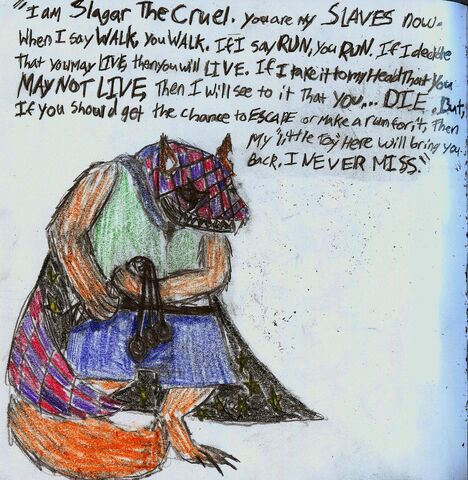 "I am Slagar The Cruel. you are my SLAVES now.
When I say WALK, you WALK. If I say RUN, you RUN. If I decide
That you may LIVE, then you will LIVE. If I take it to my Head That you
MAY NOT LIVE, Then I will see to it That you... DIE. But,
If you should get the chance to ESCAPE or make a run for it, Then
My "little Toy" Here will bring you
Back, I NEVER MISS."